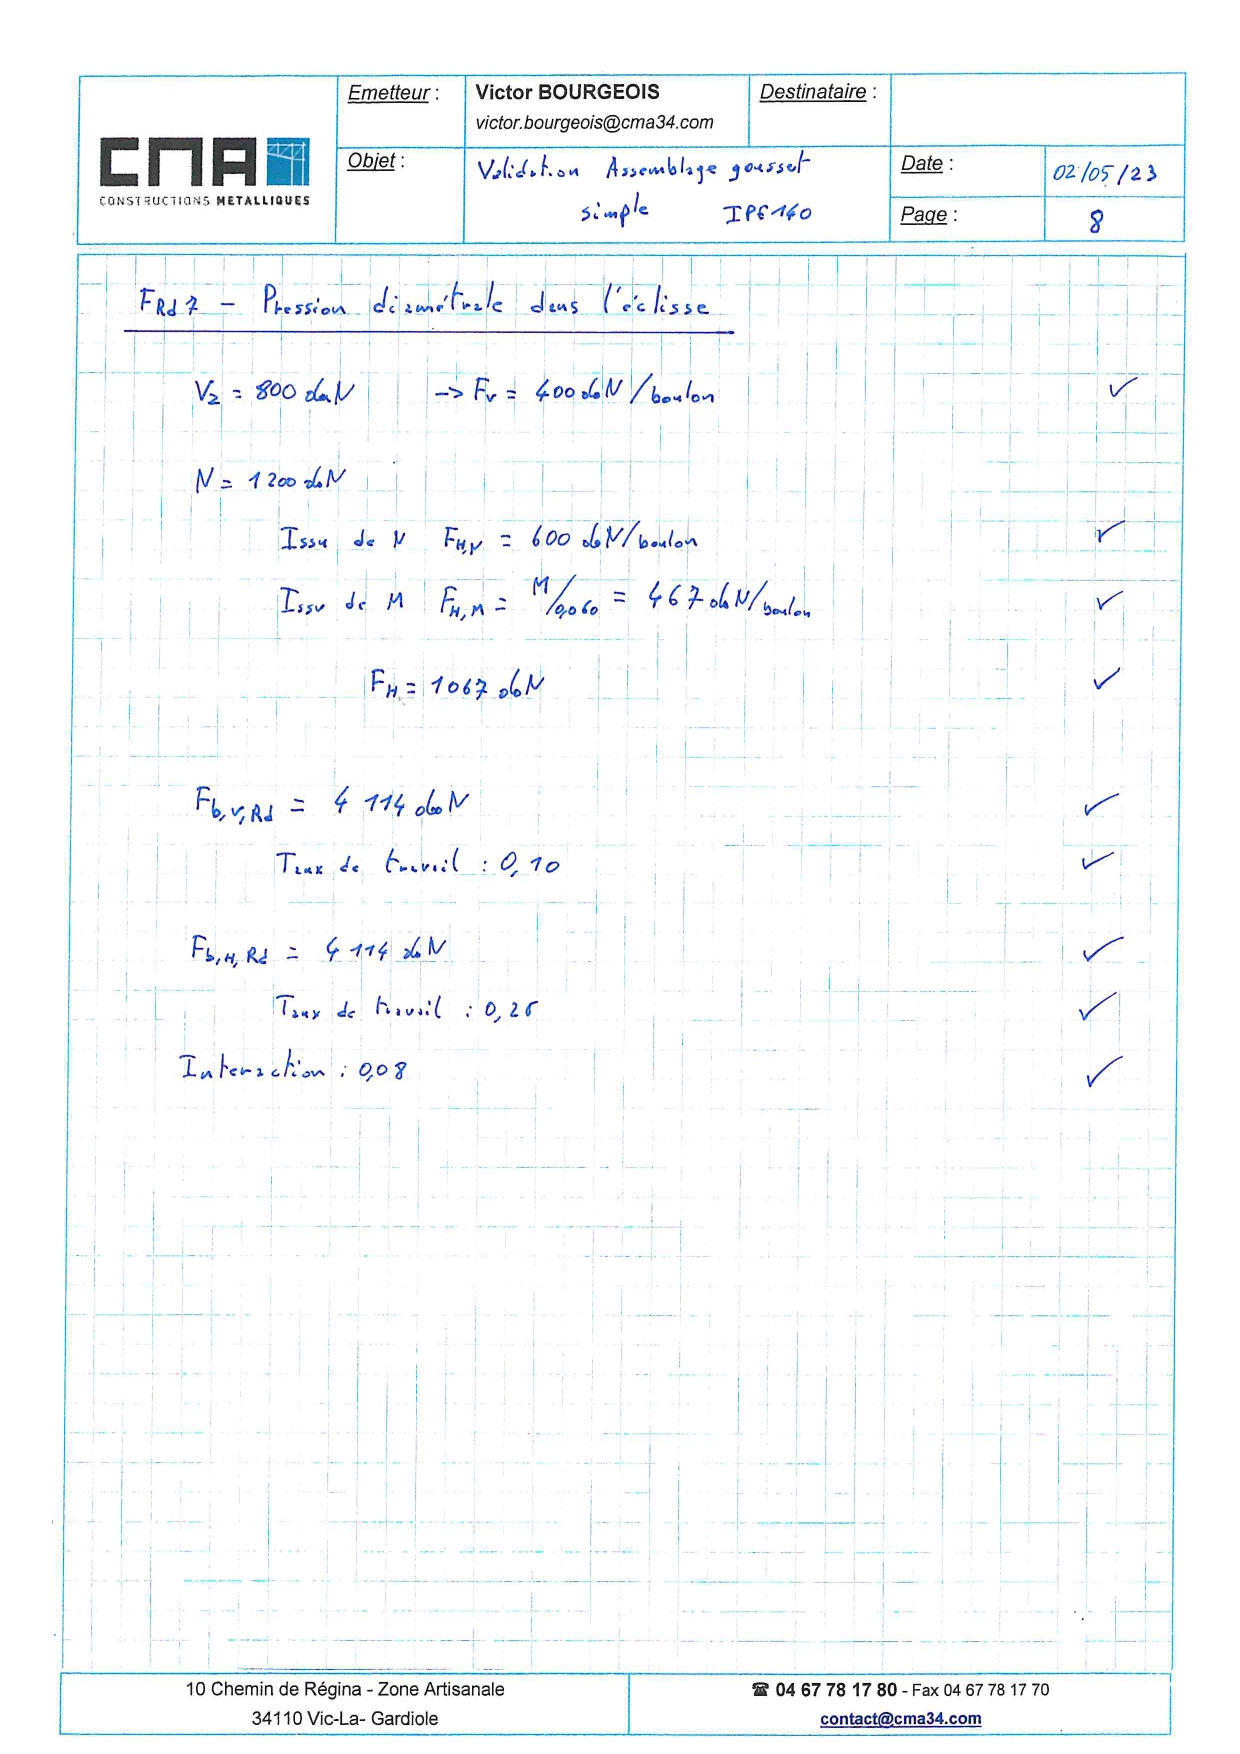 Emetteur :
Victor BOURGEOIS
victor.bourgeois@cma34.com
Destinataire :
CMA
CONSTRUCTIONS METALLIQUES
Objet :
Validation Assemblage gousset
simple IPE140
Date :
02/05/23
Page :
8
FRd7 - Pression diamétrale dans l'éclisse
Vz = 800 daN -> Fv = 400 daN/boulon ✓
N = 1200 daN
Issu de N FH,N = 600 daN/boulon ✓
Issu de M FH,M = M/0,060 = 467 daN/boulon ✓
FH = 1067 daN ✓
Fb,v,Rd = 4 114 daN ✓
Taux de travail : 0,10 ✓
Fb,H,Rd = 4 114 daN ✓
Taux de travail : 0,26 ✓
Interaction : 0,08 ✓
10 Chemin de Régina - Zone Artisanale
34110 Vic-La- Gardiole
☎ 04 67 78 17 80 - Fax 04 67 78 17 70
contact@cma34.com